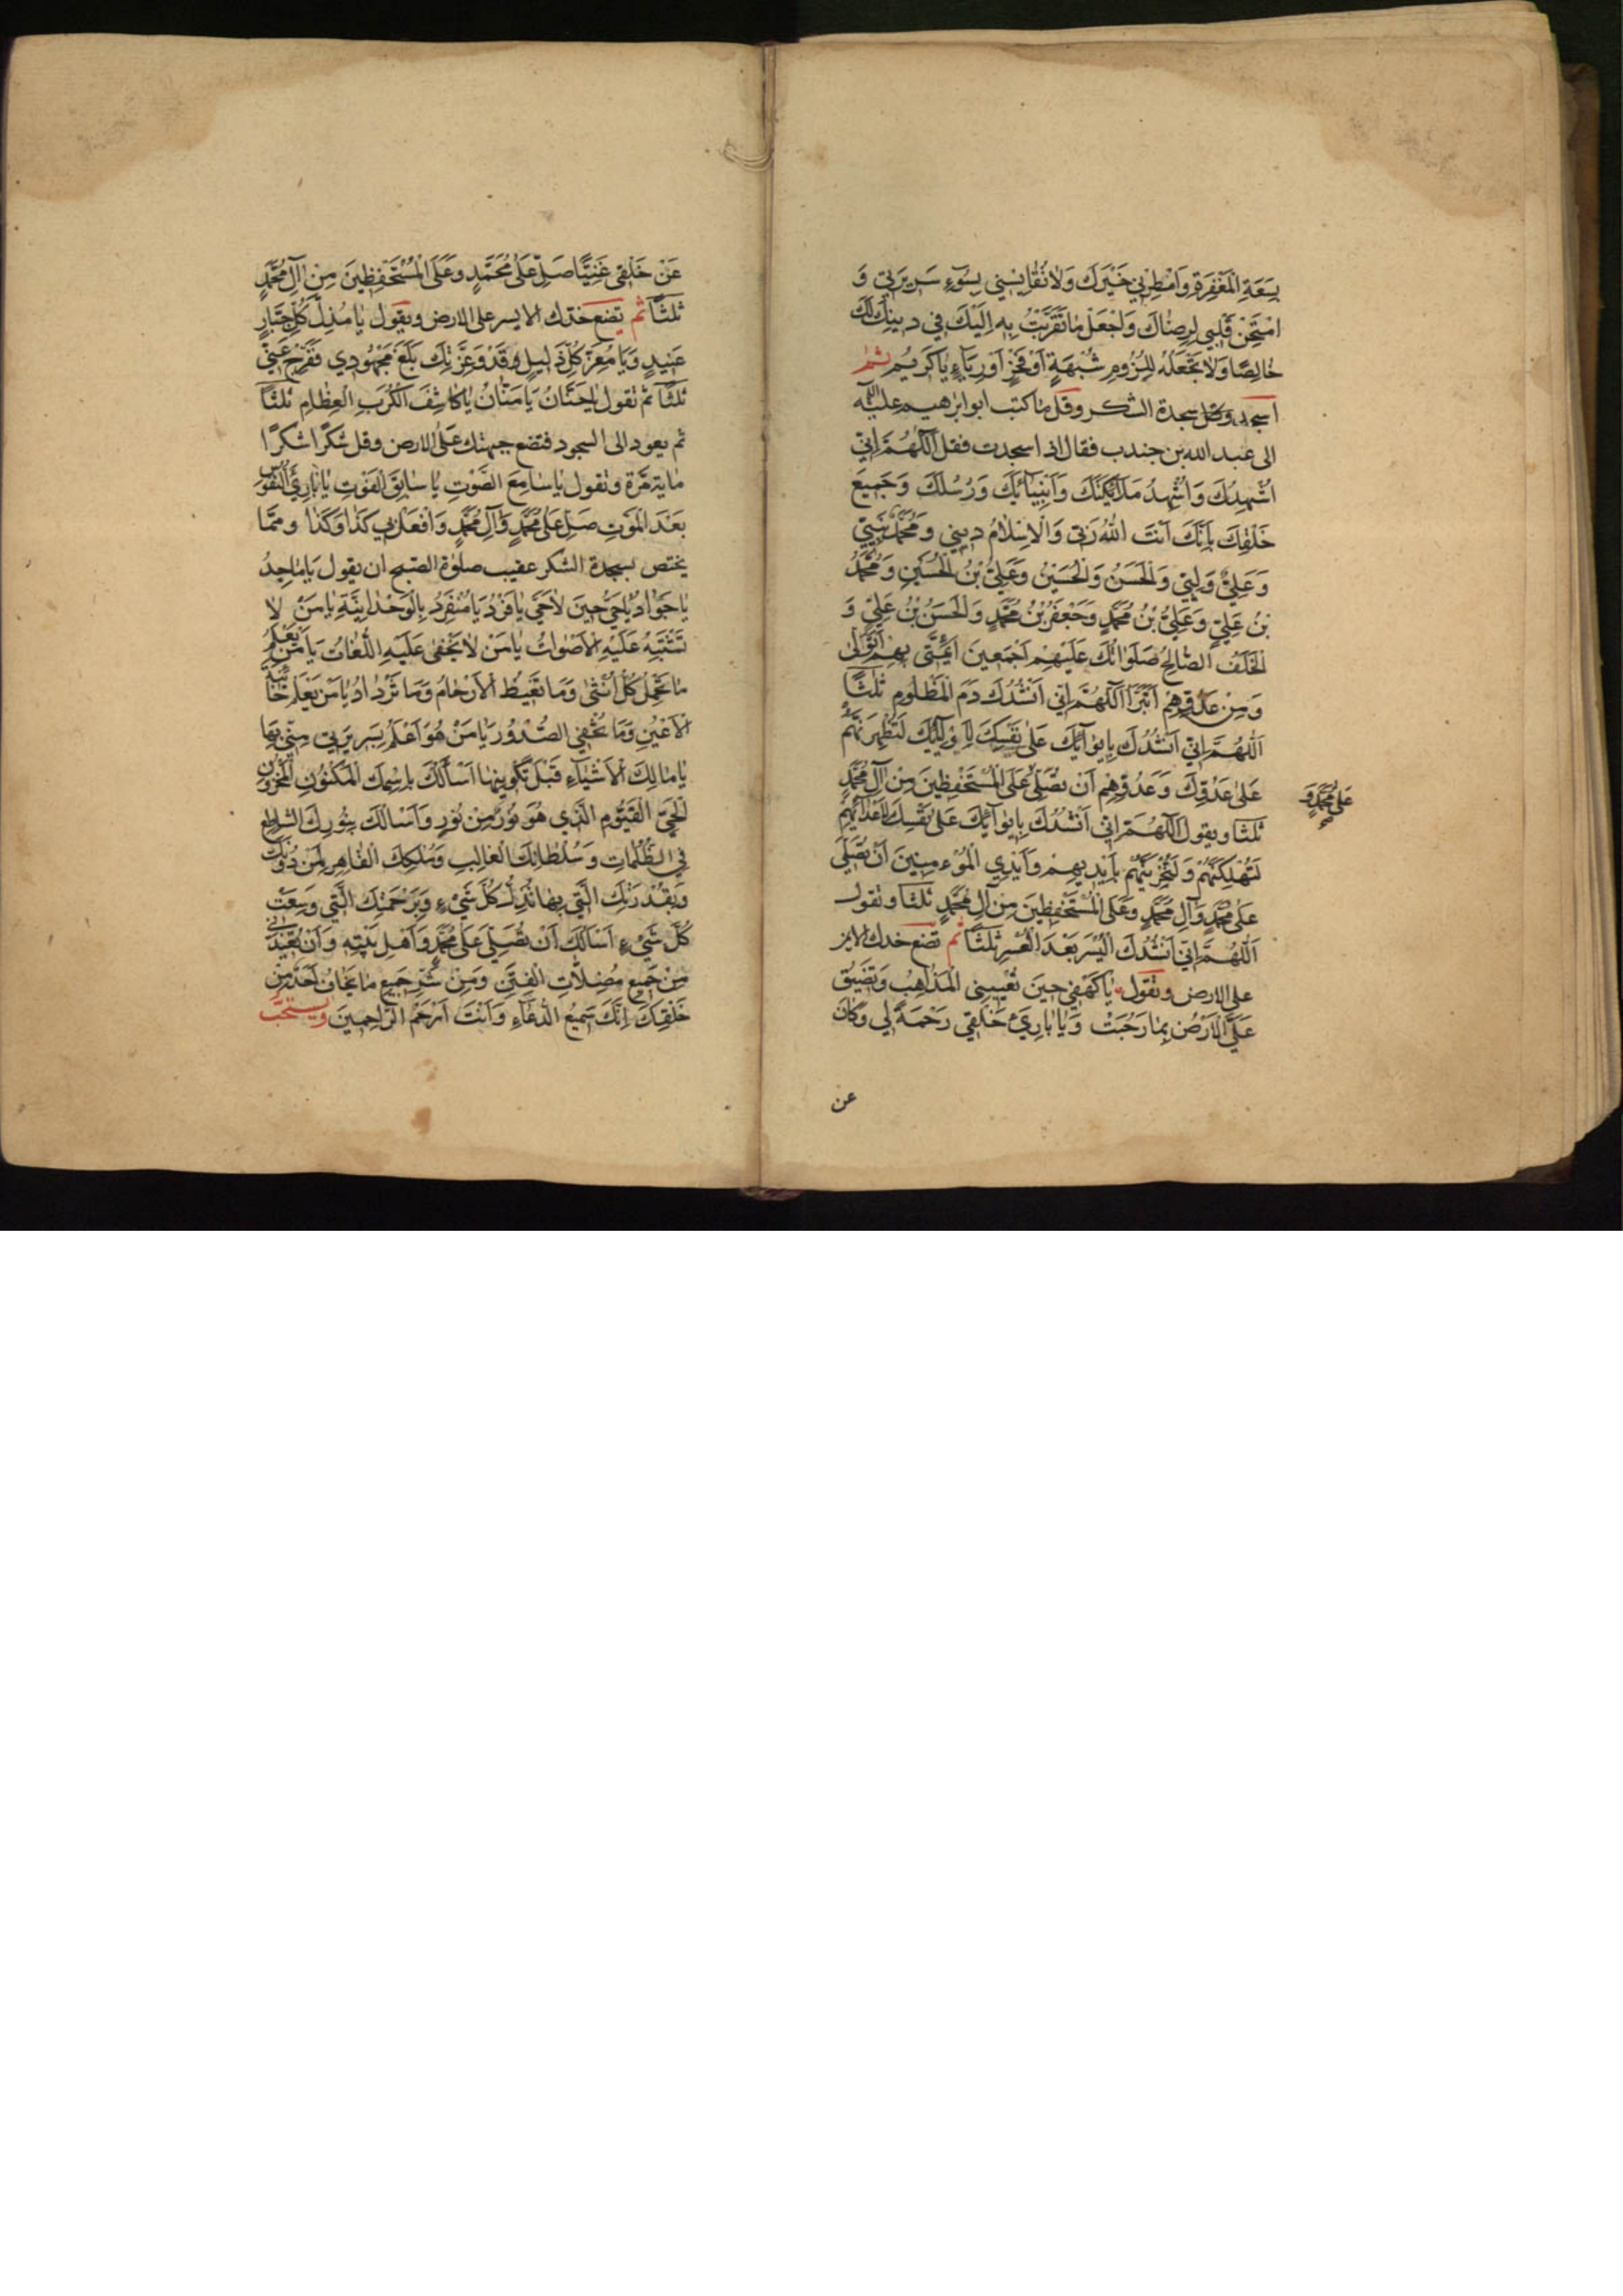 بِسَعَةِ الْمَغْفِرَةِ وَامْطِرْنِي خَيْرَكَ وَلَا تُقَايِسْنِي بِسُوٓءِ سَرِيرَتِي وَ
امْتَحِنْ قَلْبِي لِرِضَاكَ وَاجْعَلْ مَا تَقَرَّبْتُ بِهِ اِلَيْكَ فِي دِينِكَ لَكَ
خَالِصًا وَلَا تَجْعَلْهُ لِلُزُومِ شُبْهَةٍ اَوْ فَخْرٍ اَوْ رِيَآءٍ يَا كَرِيمُ ثم
اسجد سجدة الشكر وقل ما كتب ابو ابرهيم عليه السلام
الى عبد الله بن جندب فقال اذا سجدت فقل اَللّٰهُمَّ اِنِّي
اُشْهِدُكَ وَاُشْهِدُ مَلَآئِكَتَكَ وَاَنْبِيَآئَكَ وَرُسُلَكَ وَجَمِيعَ
خَلْقِكَ بِاَنَّكَ اَنْتَ اللّٰهُ رَبِّي وَالْاِسْلَامُ دِينِي وَمُحَمَّدٌ نَبِيِّي
وَعَلِيٌّ وَلِيِّي وَالْحَسَنُ وَالْحُسَيْنُ وَعَلِيُّ بْنُ الْحُسَيْنِ وَمُحَمَّدُ
بْنُ عَلِيٍّ وَعَلِيُّ بْنُ مُحَمَّدٍ وَجَعْفَرُ بْنُ مُحَمَّدٍ وَالْحَسَنُ بْنُ عَلِيٍّ وَ
الْخَلَفُ الصَّالِحُ صَلَوَاتُكَ عَلَيْهِمْ اَجْمَعِينَ اَئِمَّتِي بِهِمْ اَتَوَلَّى
وَمِنْ عَدُوِّهِمْ اَتَبَرَّأُ اَللّٰهُمَّ اِنِّي اَنْشُدُكَ دَمَ الْمَظْلُومِ ثَلٰثًا
اَللّٰهُمَّ اِنِّي اَنْشُدُكَ بِاِيوَآئِكَ عَلٰى نَفْسِكَ لِاَوْلِيَآئِكَ لَتُظْهِرَنَّهُمْ
عَلٰى عَدُوِّكَ وَعَدُوِّهِمْ اَنْ تُصَلِّيَ عَلَى الْمُسْتَحْفِظِينَ مِنْ اٰلِ مُحَمَّدٍ
عَلٰى مُحَمَّدٍ وَ
ثلثا ويقول اَللّٰهُمَّ اِنِّي اَنْشُدُكَ بِاِيوَآئِكَ عَلٰى نَفْسِكَ لِاَعْدَآئِهِمْ
لَتُهْلِكَنَّهُمْ وَلَتُخْزِيَنَّهُمْ بِاَيْدِيهِمْ وَاَيْدِي الْمُؤْمِنِينَ اَنْ تُصَلِّيَ
عَلٰى مُحَمَّدٍ وَاٰلِ مُحَمَّدٍ وَعَلَى الْمُسْتَحْفِظِينَ مِنْ اٰلِ مُحَمَّدٍ ثلثا وتقول
اَللّٰهُمَّ اِنِّي اَنْشُدُكَ الْيُسْرَ بَعْدَ الْعُسْرِ ثَلٰثًا ثم تضع خدك الايمن
على الارض وتقول يَا كَهْفِي حِينَ تُعْيِينِي الْمَذَاهِبُ وَتَضِيقُ
عَلَيَّ الْاَرْضُ بِمَا رَحُبَتْ وَيَا بَارِئَ خَلْقِي رَحْمَةً لِي وَكَانَ
عن
عَنْ خَلْقِي غَنِيًّا صَلِّ عَلٰى مُحَمَّدٍ وَعَلَى الْمُسْتَحْفِظِينَ مِنْ اٰلِ مُحَمَّدٍ
ثَلٰثًا ثم تضع خدك الايسر على الارض ويقول يَا مُذِلَّ كُلِّ جَبَّارٍ
عَنِيدٍ وَيَا مُعِزَّ كُلِّ ذَلِيلٍ قَدْ وَعِزَّتِكَ بَلَغَ مَجْهُودِي فَفَرِّجْ عَنِّي
ثَلٰثًا ثم تقول يَا حَنَّانُ يَا مَنَّانُ يَا كَاشِفَ الْكُرَبِ الْعِظَامِ ثَلٰثًا
ثم يعود الى السجود فتضع جبهتك على الارض وقل شُكْرًا شُكْرًا
ماية مرّة وتقول يَا سَامِعَ الصَّوْتِ يَا سَابِقَ الْفَوْتِ يَا بَارِئَ النُّفُوسِ
بَعْدَ الْمَوْتِ صَلِّ عَلٰى مُحَمَّدٍ وَاٰلِ مُحَمَّدٍ وَافْعَلْ بِي كَذَا وَكَذَا ومما
يختص بسجدة الشكر عقيب صلوٰة الصبح ان يقول يَا مَاجِدُ
يَا جَوَادُ يَا حَيُّ حِينَ لَا حَيَّ يَا فَرْدُ يَا مُنْفَرِدُ بِالْوَحْدَانِيَّةِ يَا مَنْ لَا
تَشْتَبِهُ عَلَيْهِ الْاَصْوَاتُ يَا مَنْ لَا يَخْفٰى عَلَيْهِ اللُّغَاتُ يَا مَنْ يَعْلَمُ
مَا تَحْمِلُ كُلُّ اُنْثٰى وَمَا تَغِيضُ الْاَرْحَامُ وَمَا تَزْدَادُ يَا مَنْ يَعْلَمُ خَائِنَةَ
الْاَعْيُنِ وَمَا تُخْفِي الصُّدُورُ يَا مَنْ هُوَ اَعْلَمُ بِسَرِيرَتِي مِنِّي بِهَا
يَا مَالِكَ الْاَشْيَآءِ قَبْلَ تَكْوِينِهَا اَسْأَلُكَ بِاسْمِكَ الْمَكْنُونِ الْمَخْزُونِ
الْحَيِّ الْقَيُّومِ الَّذِي هُوَ نُورٌ مِنْ نُورٍ وَاَسْأَلُكَ بِنُورِكَ السَّاطِعِ
فِي الظُّلُمَاتِ وَسُلْطَانِكَ الْغَالِبِ وَمُلْكِكَ الْقَاهِرِ لِمَنْ دُونَكَ
وَبِقُدْرَتِكَ الَّتِي بِهَا تُذِلُّ كُلَّ شَيْءٍ وَبِرَحْمَتِكَ الَّتِي وَسِعَتْ
كُلَّ شَيْءٍ اَسْأَلُكَ اَنْ تُصَلِّيَ عَلٰى مُحَمَّدٍ وَاَهْلِ بَيْتِهِ وَاَنْ تُعِيذَنِي
مِنْ جَمِيعِ مُضِلَّاتِ الْفِتَنِ وَمِنْ شَرِّ جَمِيعِ مَا يَخَافُ اَحَدٌ مِنْ
خَلْقِكَ اِنَّكَ سَمِيعُ الدُّعَاءِ وَاَنْتَ اَرْحَمُ الرَّاحِمِينَ ويستحبّ